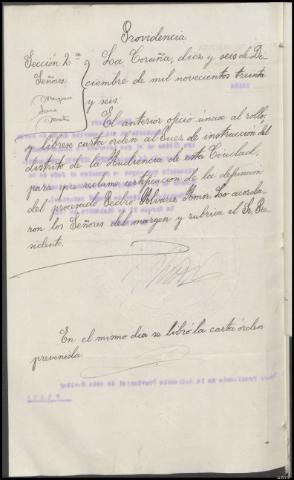 Providencia
Sección 2ª
Señores
La Coruña, diez y seis de Di-
ciembre de mil novecientos treinta
y seis.
El anterior oficio únase al rollo,
y líbrese carta orden al Juez de instrucción del
distrito de la Audiencia de esta Ciudad,
para que reclame certificación de la defunción
del procesado Pedro Amor. Lo acorda-
ron los Señores del margen y rubrica el Sr. Pre-
sidente.
En el mismo día se libró la carta órden
prevenida